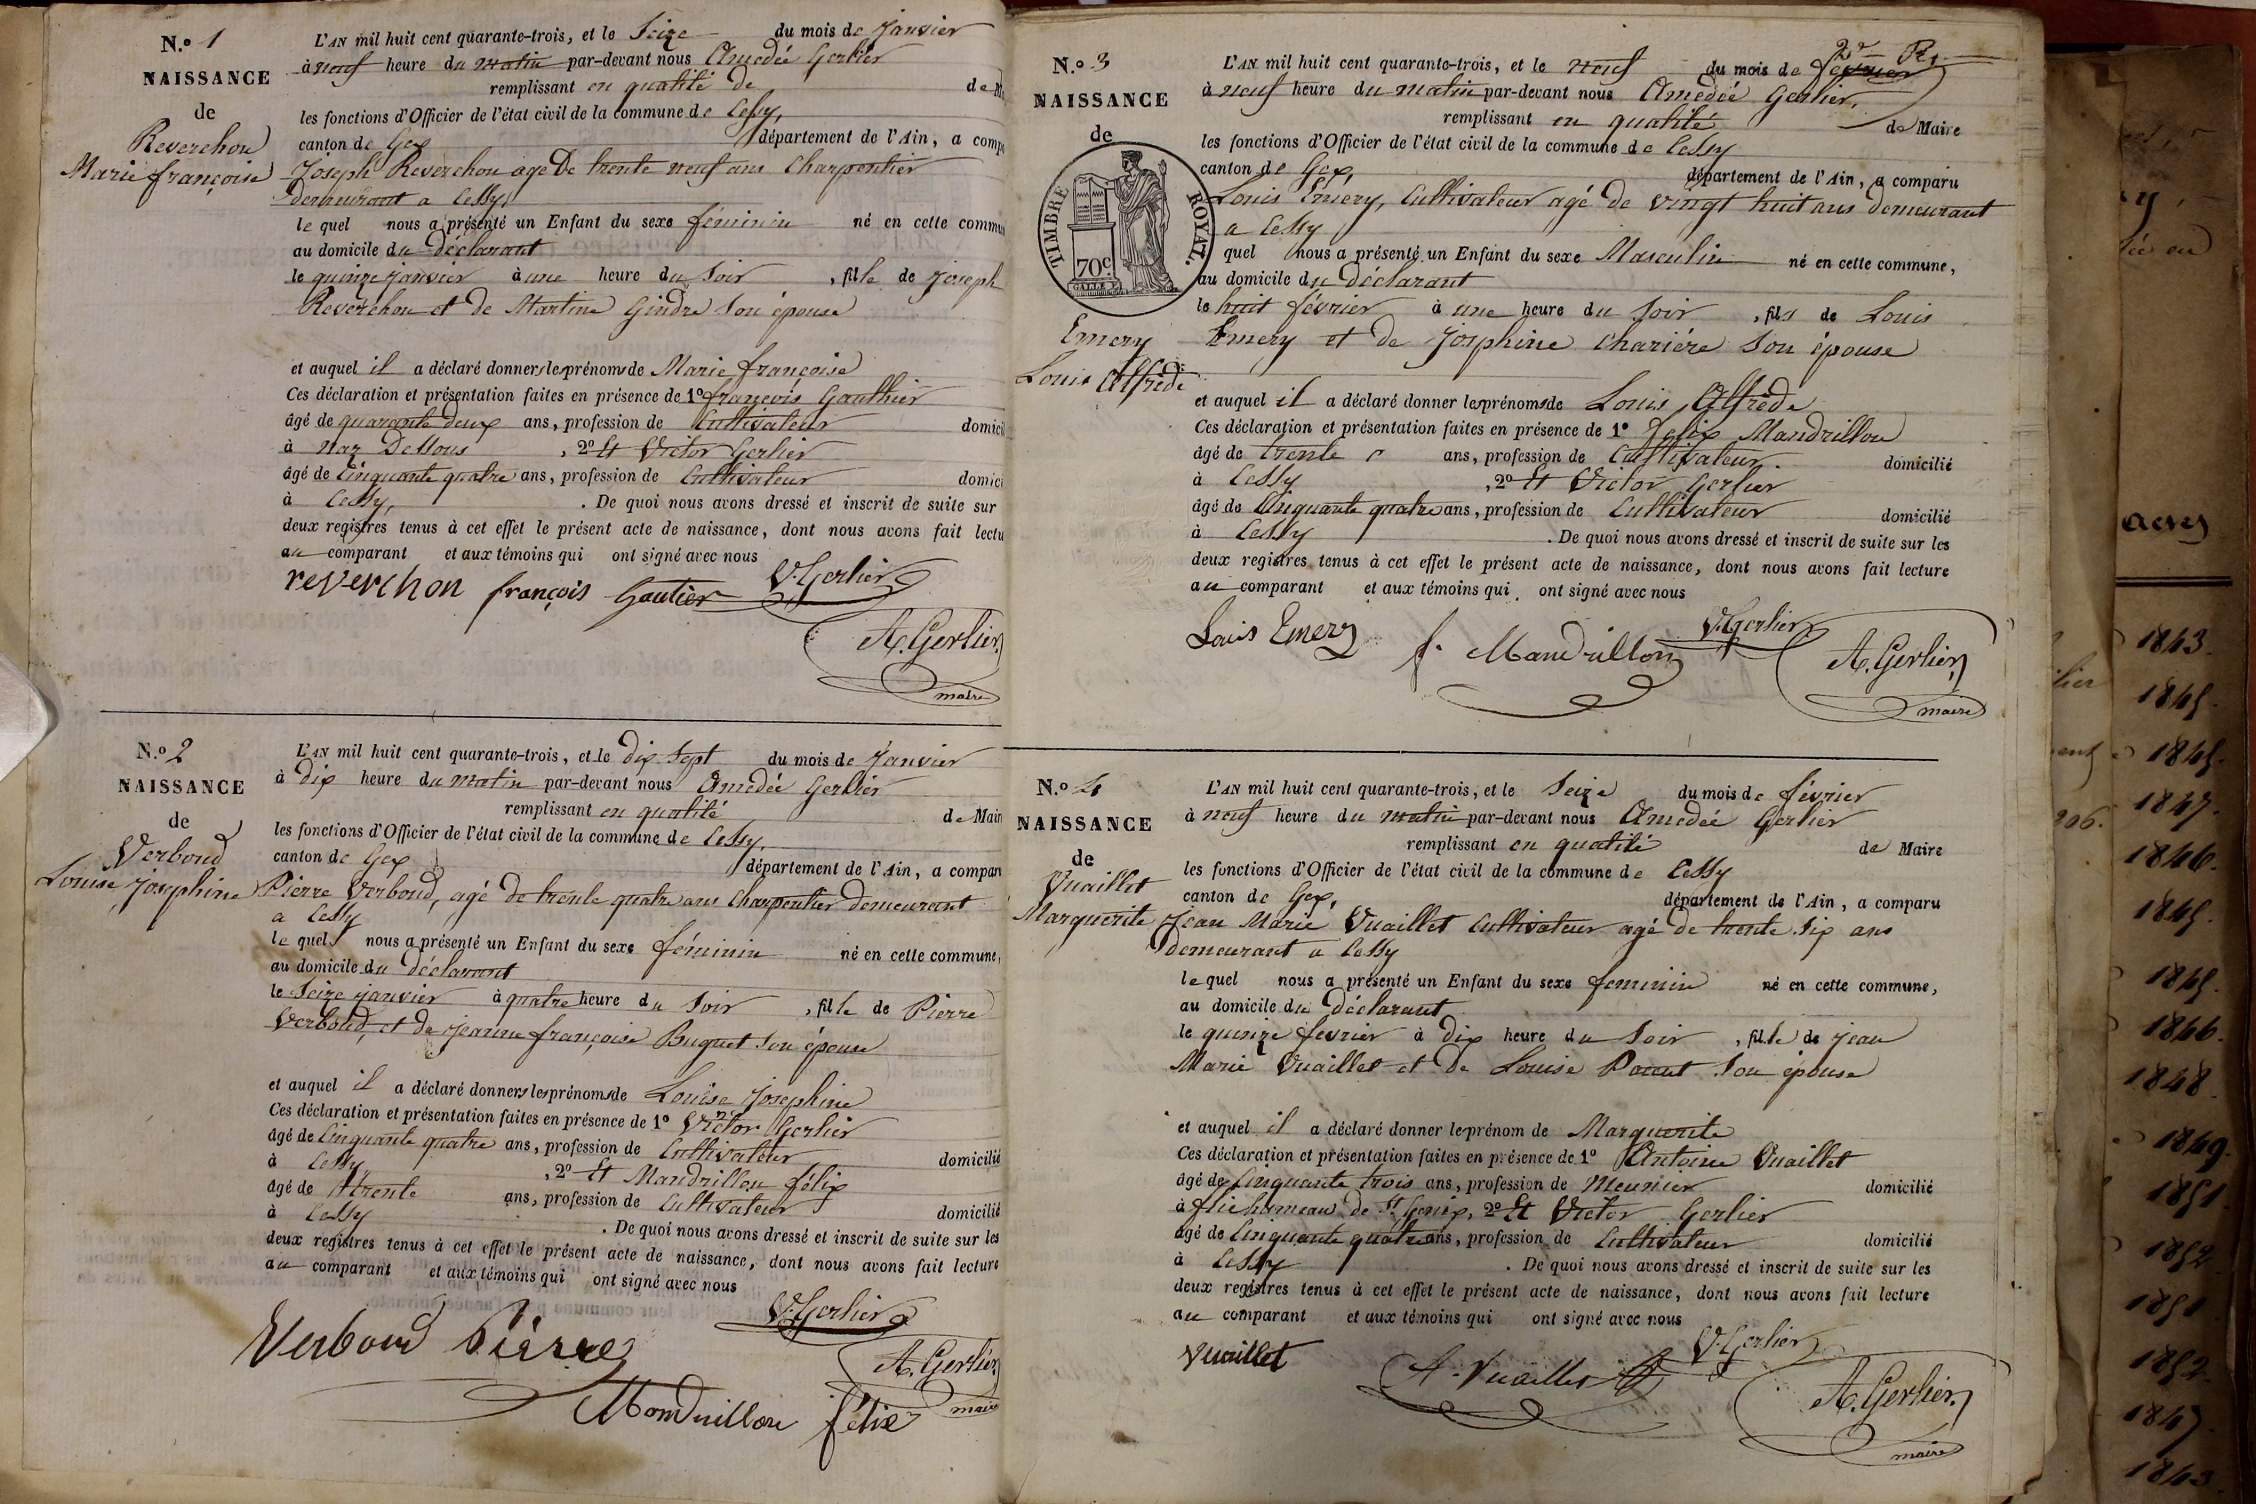 N.o 1
NAISSANCE
de
Reverchon
Marie françoise
L'AN mil huit cent quarante-trois, et le Seize du mois de Janvier
à neuf heure du matin par-devant nous Amedée Gerlier
remplissant en qualité de de M
les fonctions d'Officier de l'état civil de la commune de Cessy,
canton de Gex département de l'Ain, a comp
Joseph Reverchon agé de trente neuf ans Charpentier
demeurant a Cessy,
le quel nous a présenté un Enfant du sexe féminin né en cette commun
au domicile du déclarant
le quinze janvier à une heure du Soir, fille de joseph
Reverchon et de Martine Gindre Son épouse
et auquel il a déclaré donner les prénoms de Marie françoise
Ces déclaration et présentation faites en présence de 1o françois Gauthier
âgé de quarante deux ans, profession de Cultivateur domici
à Naz Dessous, 2o Et Victor Gerlier
âgé de Cinquante quatre ans, profession de Cultivateur domici
à Cessy, . De quoi nous avons dressé et inscrit de suite sur
deux registres tenus à cet effet le présent acte de naissance, dont nous avons fait lectu
au comparant et aux témoins qui ont signé avec nous
reverchon françois Gautier V. Gerlier
A. Gerlier,
maire
N.o 2
NAISSANCE
de
Verboud
Louise Josephine
L'AN mil huit cent quarante-trois, et le dix Sept du mois de Janvier
à dix heure du matin par-devant nous Amedée Gerlier
remplissant en qualité de Mair
les fonctions d'Officier de l'état civil de la commune de Cessy,
canton de Gex département de l'Ain, a compar
Pierre Verboud, agé de trente quatre ans Charpentier demeurant
a Cessy
le quel nous a présenté un Enfant du sexe féminin né en cette commune,
au domicile du déclarant
le Seize janvier à quatre heure du Soir, fille de Pierre
Verboud, et de jeanne françoise Buguet Son épouse
et auquel il a déclaré donner les prénoms de Louise Josephine
Ces déclaration et présentation faites en présence de 1o Victor Gerlier
âgé de Cinquante quatre ans, profession de Cultivateur domicilié
à Cessy, 2o Et Mandrillon félix
âgé de trente ans, profession de Cultivateur domicilié
à Cessy . De quoi nous avons dressé et inscrit de suite sur les
deux registres tenus à cet effet le présent acte de naissance, dont nous avons fait lecture
au comparant et aux témoins qui ont signé avec nous
V. Gerlier
Verboud Pierre
A. Gerlier
maire
Mandrillon félix
N.o 3
NAISSANCE
de
TIMBRE ROYAL.
70c
Emery
Louis Alfrède
2e R.
L'AN mil huit cent quarante-trois, et le neuf du mois de février
à neuf heure du matin par-devant nous Amedée Gerlier,
remplissant en qualité de Maire
les fonctions d'Officier de l'état civil de la commune de Cessy
canton de Gex, département de l'Ain, a comparu
Louis Emery, Cultivateur agé de vingt huit ans demeurant
a Cessy
quel nous a présenté un Enfant du sexe Masculin né en cette commune,
au domicile du déclarant
le huit février à une heure du Soir, fils de Louis
Emery et de Josphine Chariére Son épouse
et auquel il a déclaré donner les prénoms de Louis Alfrède
Ces déclaration et présentation faites en présence de 1o Felix Mandrillon
âgé de trente ans, profession de Cultivateur. domicilié
à Cessy, 2o Et Victor Gerlier
âgé de Cinquante quatre ans, profession de Cultivateur domicilié
à Cessy . De quoi nous avons dressé et inscrit de suite sur les
deux registres tenus à cet effet le présent acte de naissance, dont nous avons fait lecture
au comparant et aux témoins qui ont signé avec nous
Louis Emery f. Mandrillon V. Gerlier
A. Gerlier,
maire
N.o 4
NAISSANCE
de
Vuaillet
Marguerite
L'AN mil huit cent quarante-trois, et le Seize du mois de février
à neuf heure du matin par-devant nous Amedée Gerlier
remplissant en qualité de Maire
les fonctions d'Officier de l'état civil de la commune de Cessy
canton de Gex, département de l'Ain, a comparu
Jean Marie Vuaillet Cultivateur agé de trente Six ans
demeurant a Cessy
le quel nous a présenté un Enfant du sexe feminin né en cette commune,
au domicile du déclarant
le quinze fevrier à dix heure du Soir, fille de Jean
Marie Vuaillet et de Louise Son épouse
et auquel il a déclaré donner le prénom de Marguerite
Ces déclaration et présentation faites en présence de 1o Antoine Vuaillet
âgé de Cinquante trois ans, profession de Meunier domicilié
à flie hameau de St Genix, 2o Et Victor Gerlier
âgé de Cinquante quatre ans, profession de Cultivateur domicilié
à Cessy . De quoi nous avons dressé et inscrit de suite sur les
deux registres tenus à cet effet le présent acte de naissance, dont nous avons fait lecture
au comparant et aux témoins qui ont signé avec nous
Vuaillet A. Vuaillet V. Gerlier
A. Gerlier,
maire
actes
1843.
1845.
1845.
1847.
206.
1846.
1845.
1845.
1846.
1848
1849.
1851.
1852
1851
1852.
1847.
1843